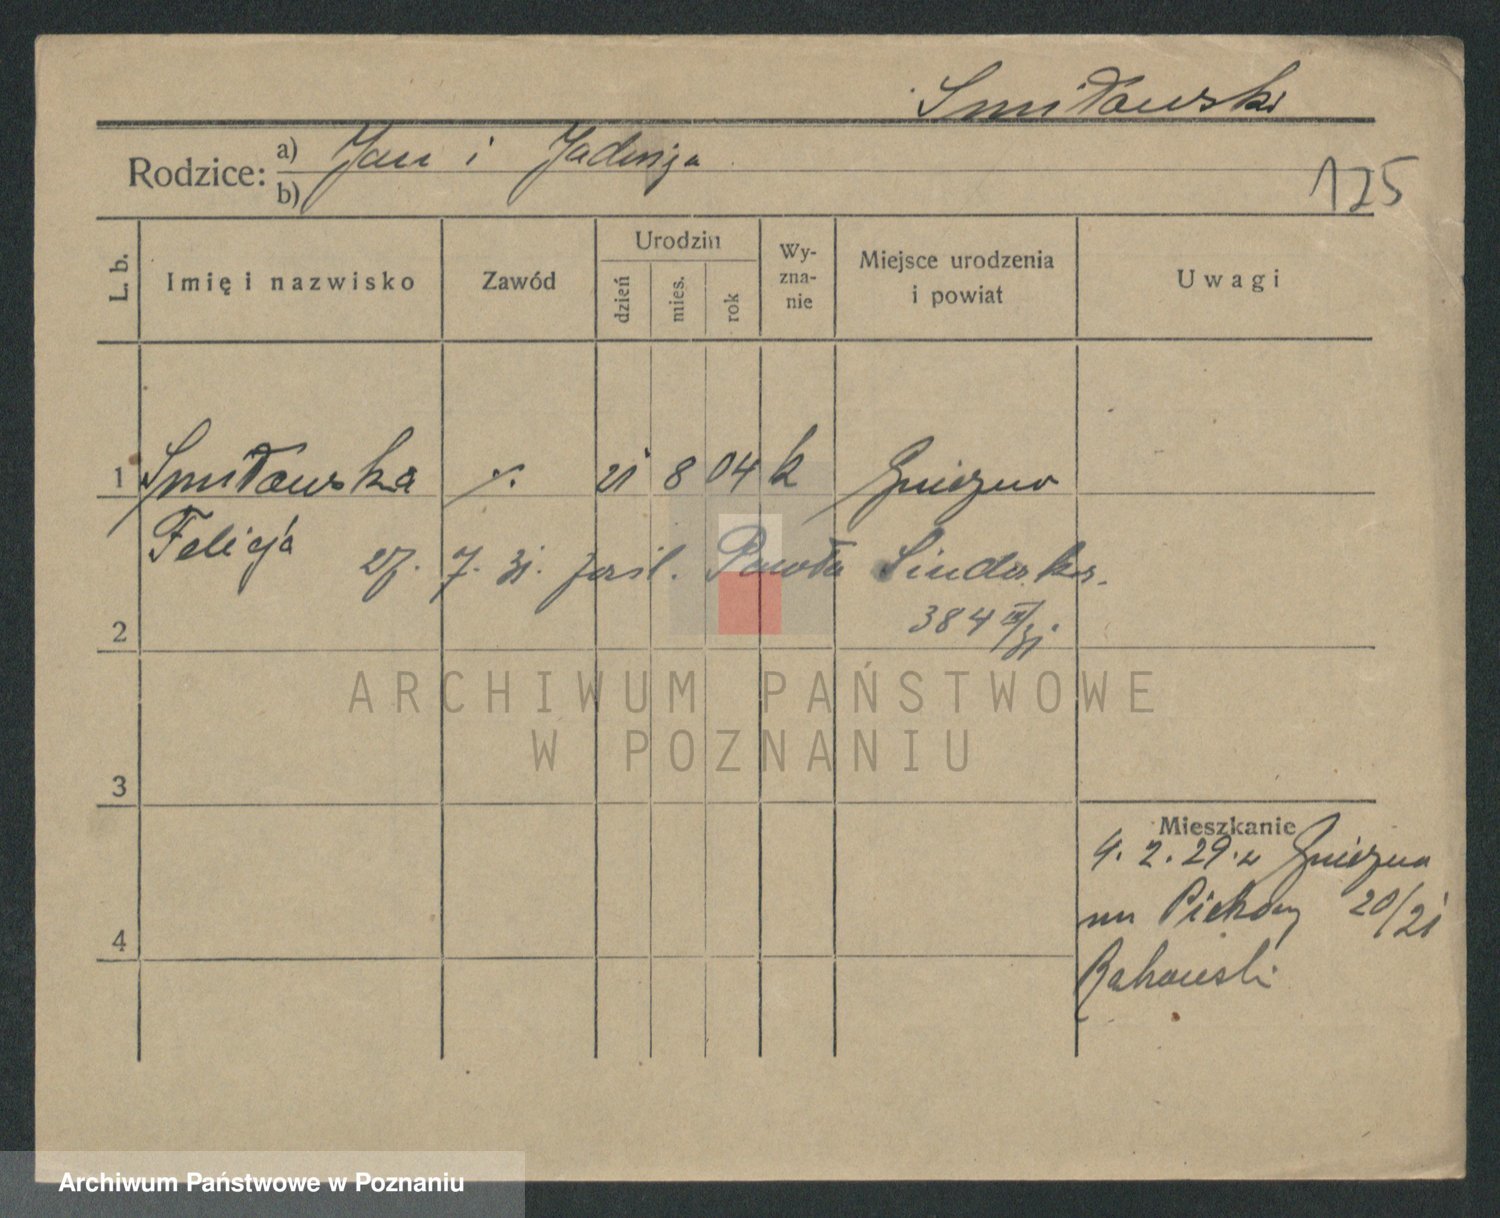 Smiławski
Rodzice: a) Jan i Jadwiga
b)
125
L. b.
Imię i nazwisko
Zawód
Urodzin
dzień
mies.
rok
Wy-
zna-
nie
Miejsce urodzenia
i powiat
Uwagi
1 Smiławska ·/. 21 8 04 k Gniezno
Felicja 27. 7. 31. zaśl. Pawła
384 III/31
2
3
4
Mieszkanie
4. 2. 29. z Gniezna
20/21
Rakowski
ARCHIWUM PAŃSTWOWE
W POZNANIU
Archiwum Państwowe w Poznaniu